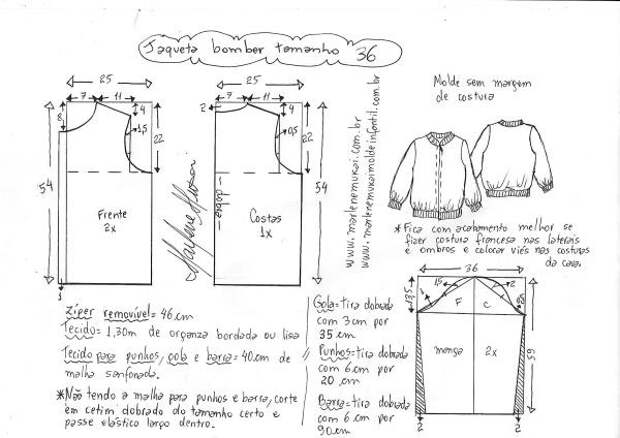 Jaqueta bomber tamanho 36
25
7
11
4
8
1,5
22
54
Frente
2x
1
25
7
11
2
4
0,5
22
54
dobra
Costas
1x
Marlene Mukai
www.marlenemukai.com.br
www.marlenemukaimoldeinfantil.com.br
Molde sem margem
de costura
*Fica com acabamento melhor se
fizer costura francesa nas laterais
e ombros e colocar viés nas costuras
da cava.
36
13,5
1,5
2
F
C
manga
2x
59
2
2
Zíper removível = 46cm
Tecido = 1,30m de organza bordada ou lisa
Tecido para punhos, gola e barra = 40cm de
malha sanfonada.
*Não tendo a malha para punhos e barra, corte
em cetim dobrado do tamanho certo e
passe elástico largo dentro.
Gola = tira dobrada
com 3cm por
35cm
Punhos = tira dobrada
com 6cm por
20cm
Barra = tira dobrada
com 6cm por
90cm